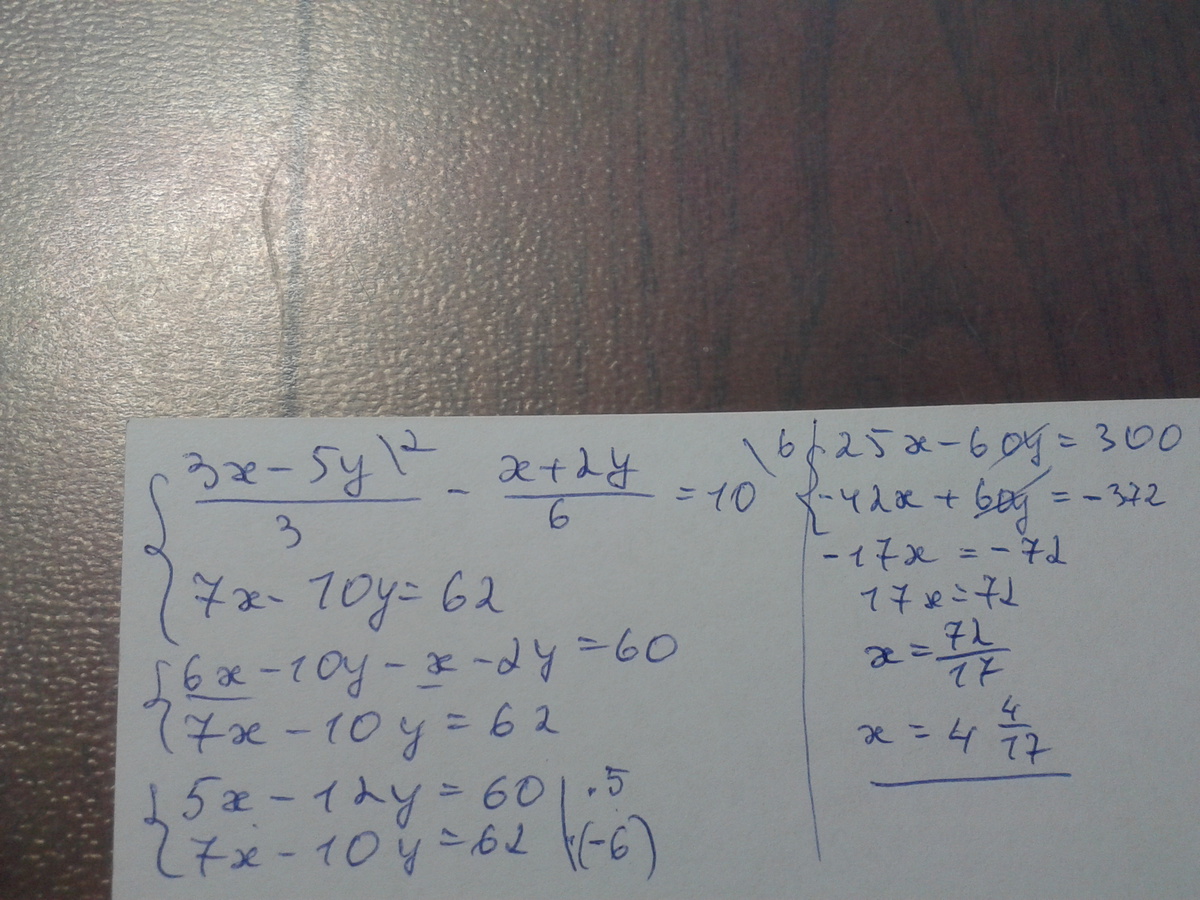 { (3x - 5y)/3 \2 - (x + 2y)/6 = 10 \6
7x - 10y = 62
{ 6x - 10y - x - 2y = 60
7x - 10y = 62
{ 5x - 12y = 60 | ·5
7x - 10y = 62 | ·(-6)
{ 25x - 60y = 300
-42x + 60y = -372
-17x = -72
17x = 72
x = 72/17
x = 4 4/17